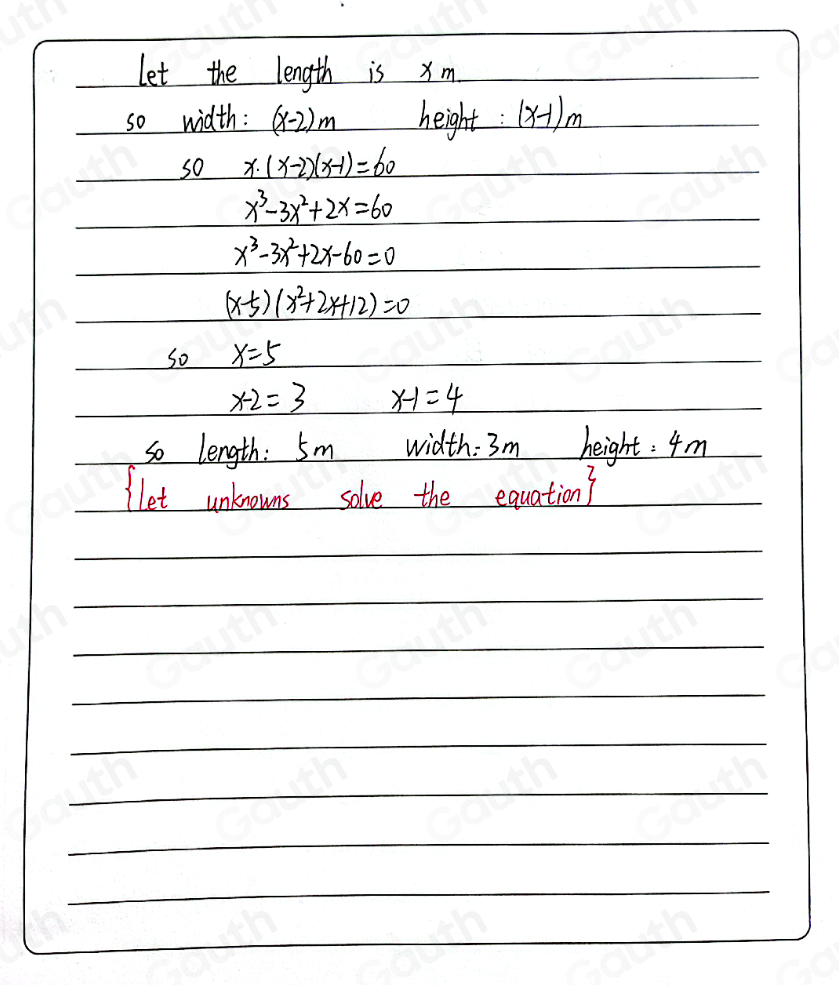 Let the length is x m
so width: (x-2)m height: (x-1)m
so x·(x-2)(x-1)=60
x³-3x²+2x=60
x³-3x²+2x-60=0
(x-5)(x²+2x+12)=0
so x=5
x-2=3 x-1=4
so length: 5m width: 3m height: 4m
{let unknowns solve the equation}